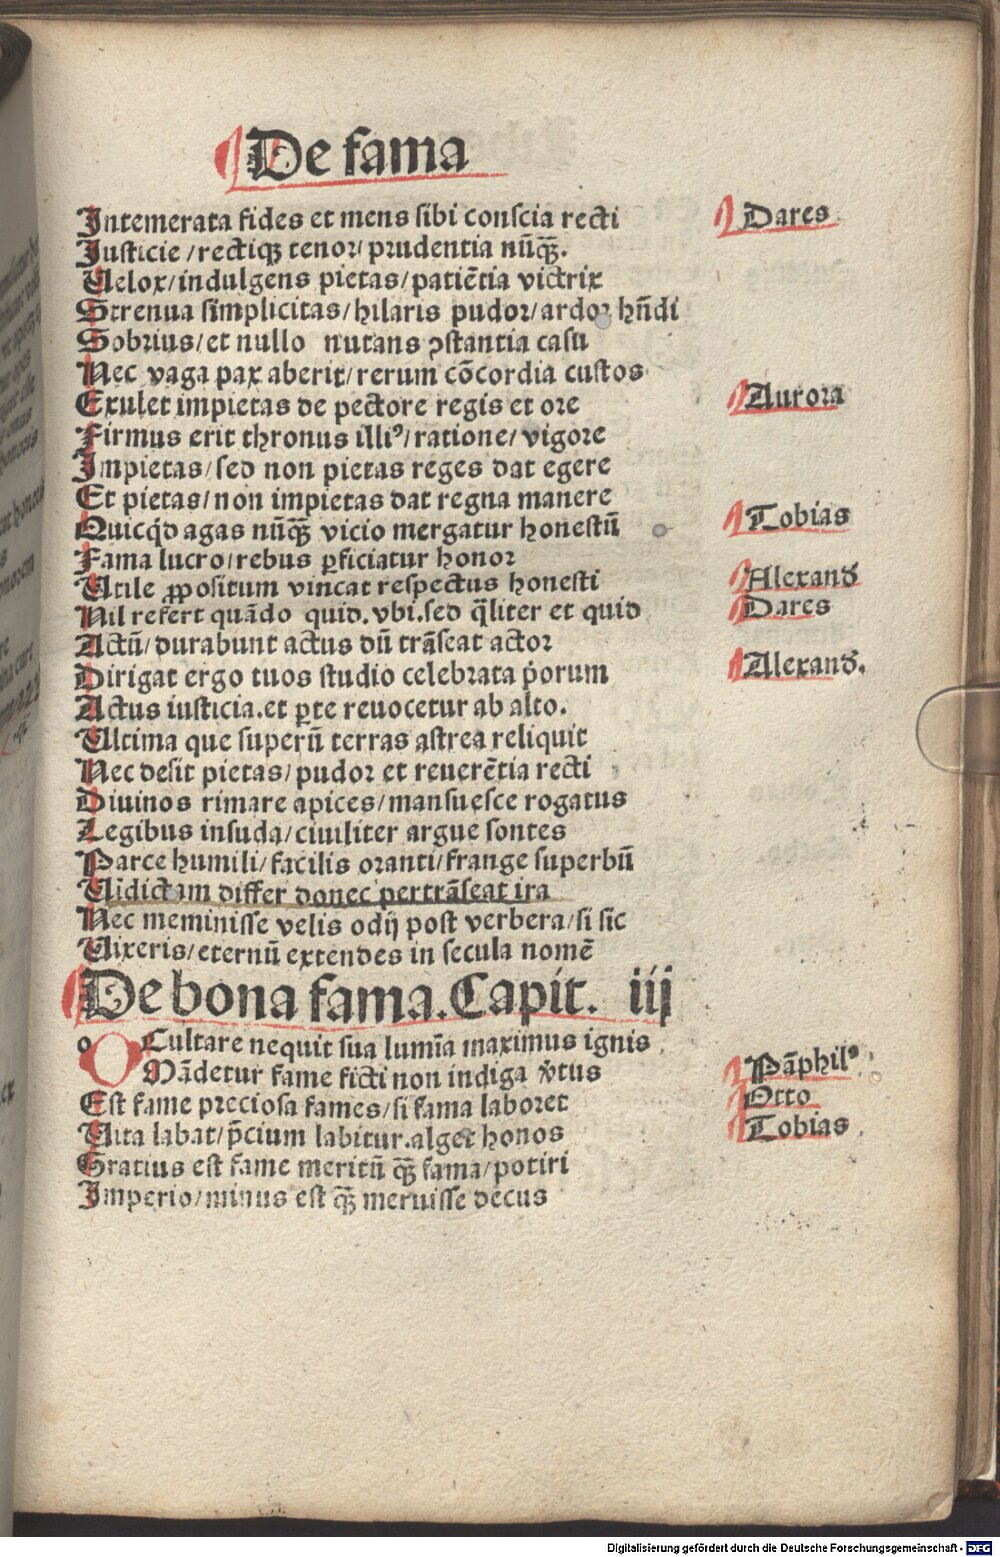 De fama
Intemerata fides et mens sibi conscia recti
Dares
Justicie/rectiqꝫ tenor/prudentia nūqꝫ̄.
Uelox/indulgens pietas/patiētia victrix
Strenua simplicitas/hilaris pudor/ardor hn̄di
Sobrius/et nullo nutans ꝯstantia casu
Nec vaga pax aberit/rerum cōcordia custos
Exulet impietas de pectore regis et ore
Aurora
Firmus erit thronus illiꝰ/ratione/vigore
Impietas/sed non pietas reges dat egere
Et pietas/non impietas dat regna manere
Quicqd̓ agas nūqꝫ̄ vicio mergatur honestū
Tobias
Fama lucro/rebus ꝑficiatur honor
Utile ꝓpositum vincat respectus honesti
Alexand̓
Nil refert quādo quid.vbi.sed q̄liter et quid
Dares
Actū/durabunt actus dū trāseat actor
Dirigat ergo tuos studio celebrata p̓orum
Alexand̓.
Actus iusticia.et ꝑte reuocetur ab alto.
Ultima que superū terras astrea reliquit
Nec desit pietas/pudor et reuerētia recti
Diuinos rimare apices/mansuesce rogatus
Legibus insuda/ciuiliter argue sontes
Parce humili/facilis oranti/frange superbū
Uidictam differ donec pertrāseat ira
Nec meminisse velis odij post verbera/si sic
Uixeris/eternū extendes in secula nomē
De bona fama.Capit. iij
oCcultare nequit sua lumīa maximus ignis
Pāphilꝰ
Mādetur fame ficti non indiga v̓tus
Est fame preciosa fames/si fama laboret
Otto
Uita labat/p̄cium labitur.alget honos
Tobias
Gratius est fame meritū qꝫ̄ fama/potiri
Imperio/minus est qꝫ̄ meruisse decus
Digitalisierung gefördert durch die Deutsche Forschungsgemeinschaft - DFG